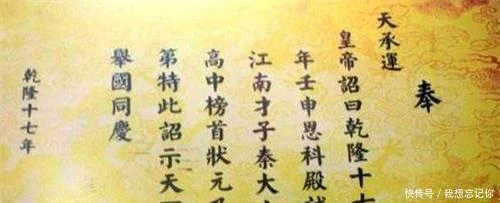 奉
天承運
皇帝詔曰乾隆十七
年壬申恩科殿試
江南才子秦大士
高中榜首狀元及
第特此詔示天下
舉國同慶
乾隆十七年
快传号/我想忘记你